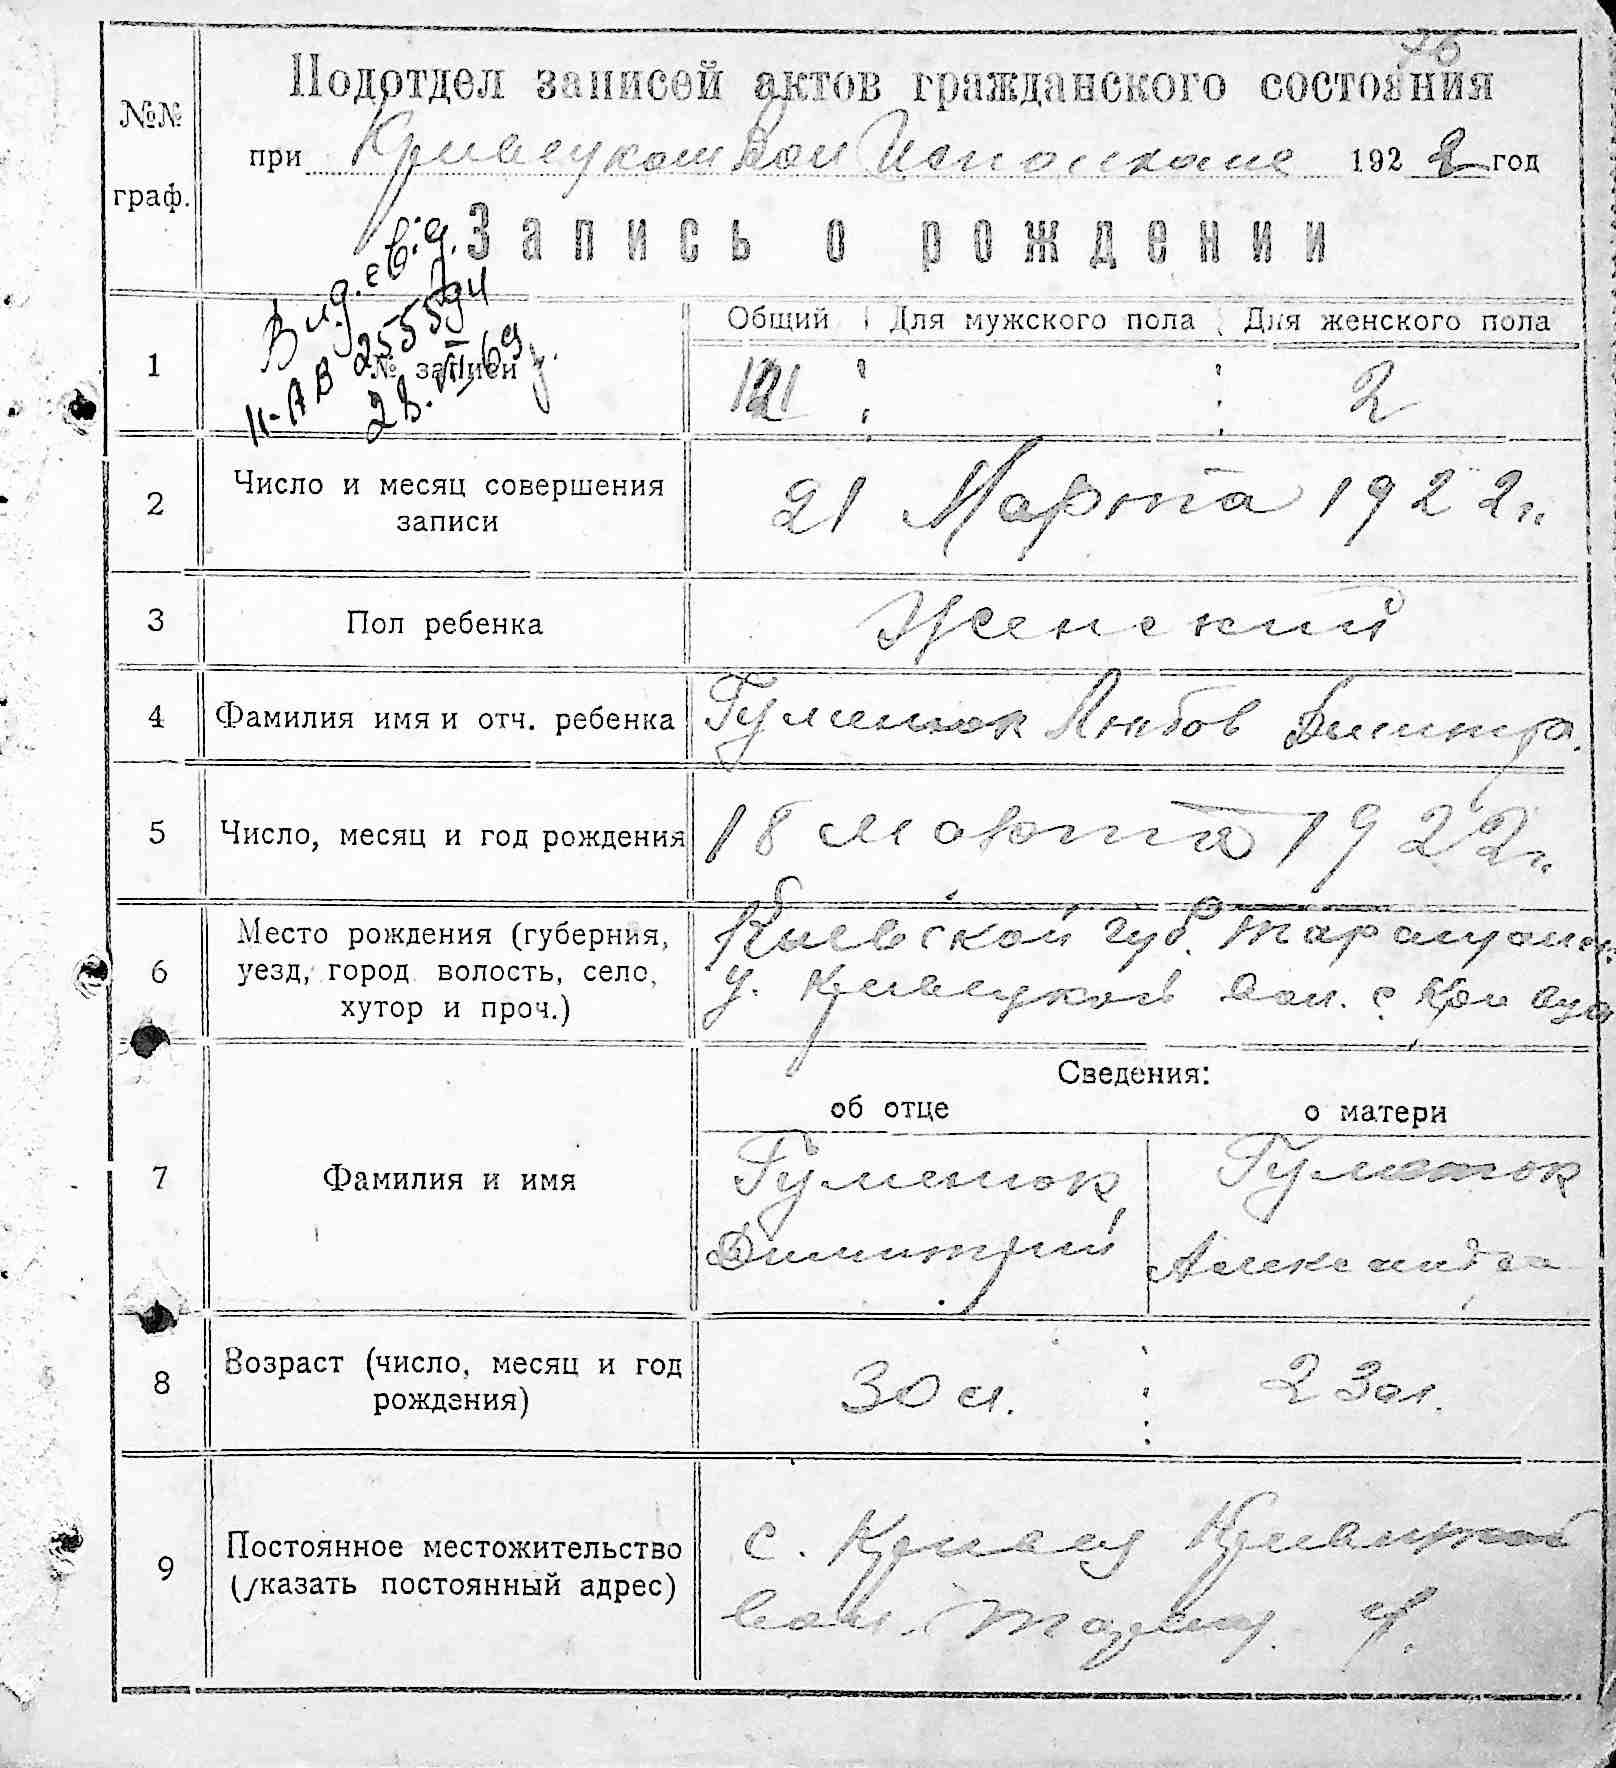 Подотдел записей актов гражданского состояния
при Кривецком Вол Исполкоме 1922 год
Запись о рождении
№№ граф.
В д. св.
II-АВ 255594
28.VII.69 г.
Общий Для мужского пола Для женского пола
1 № записи 2
2 Число и месяц совершения записи 21 Марта 1922 г.
3 Пол ребенка Женский
4 Фамилия имя и отч. ребенка Гуменюк Любов Димитр.
5 Число, месяц и год рождения 18 марта 1922 г.
6 Место рождения (губерния, Киевской губ. Таращанск.
уезд, город волость, село, у. Кривецкой вол. с.
хутор и проч.)
Сведения:
об отце о матери
7 Фамилия и имя Гуменюк Гуменюк
Димитрий Александра
8 Возраст (число, месяц и год рождения) 30 л. 23 л.
9 Постоянное местожительство с. Кривец Кривецкой
(указать постоянный адрес) вол. Таращ. у.